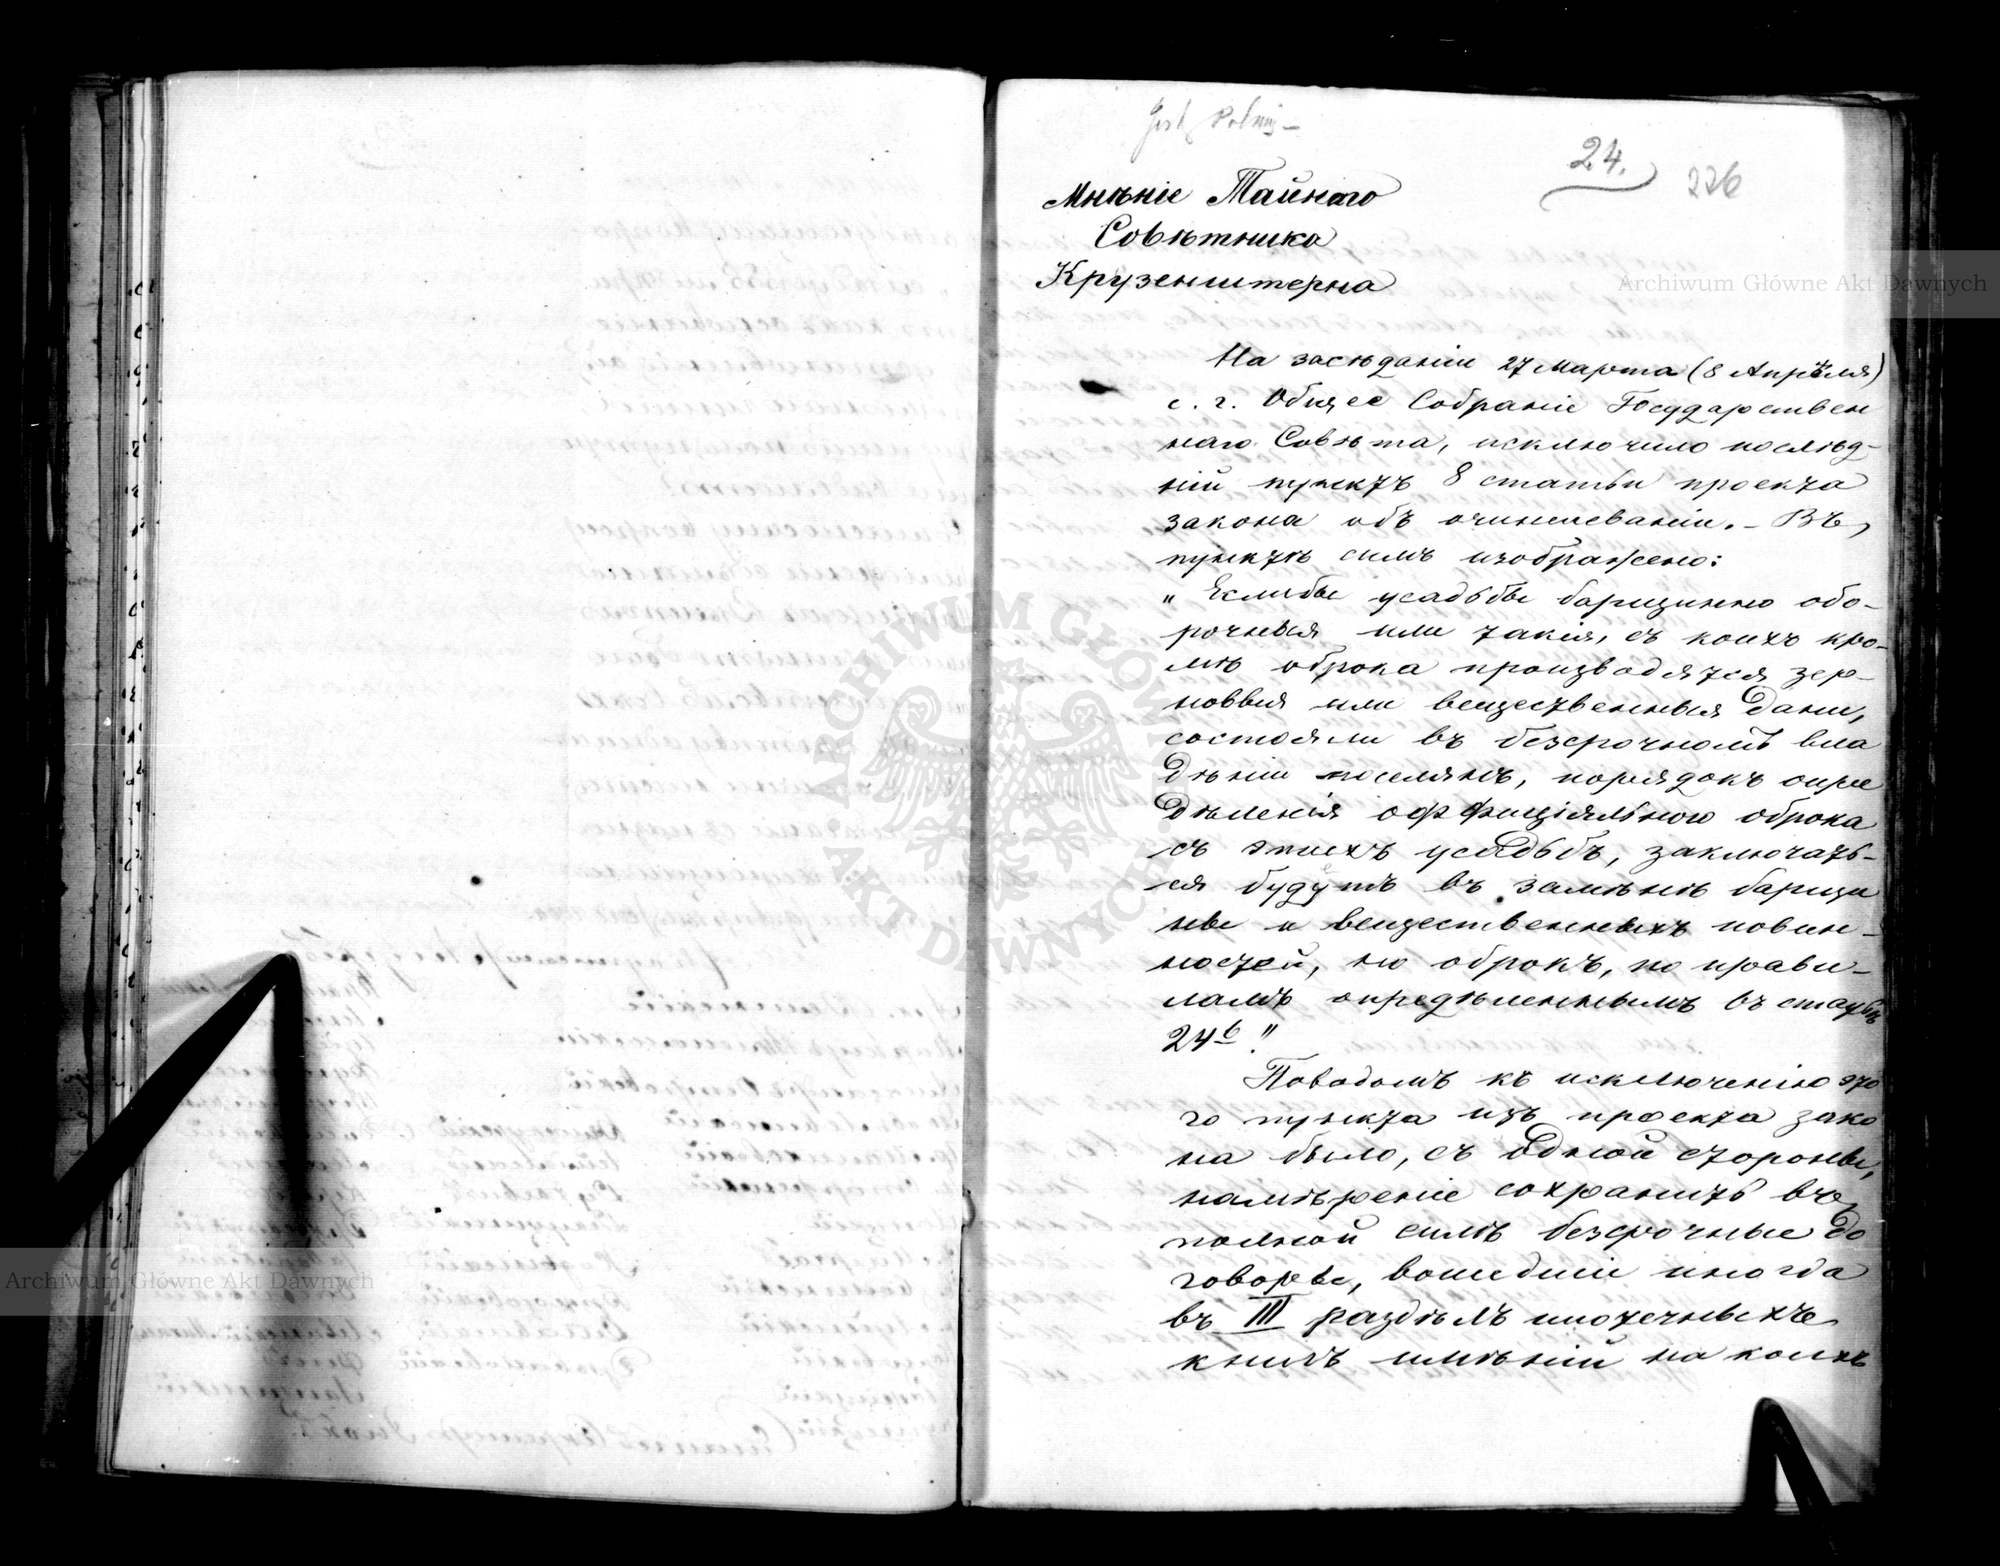 Jest Polski –
24.
226
Мнѣніе Тайнаго
Совѣтника
Крузенштерна
На засѣданіи 27 Марта (8 Апрѣля)
с. г. Общее Собраніе Государствен
наго Совѣта, исключило послѣд-
ній пунктъ 8 статьи проекта
закона объ очиншеваніи. – Въ
пунктѣ семъ изображено:
„ Еслибы усадьбы барщинно обо-
рочныя или такія, съ коихъ кро-
мѣ оброка производятся зер-
новыя или вещественныя дани,
состояли въ безсрочномъ вла
дѣніи поселянъ, порядокъ опре
дѣленія оффиціяльного оброка
съ этихъ усадьбъ, заключать-
ся будутъ въ замѣнѣ барщи
ны и вещественныхъ повин-
ностей, на оброкъ, по прави-
ламъ опредѣленнымъ въ статьѣ
24й."
Поводомъ къ исключенію это
го пункта изъ проекта зако
на было, съ одной стороны,
намѣреніе сохранить въ
полной силѣ безсрочные до
говоры, вошедшіе иногда
въ III раздѣлъ ипотечныхъ
книгъ имѣній на коихъ
Archiwum Główne Akt Dawnych
Archiwum Główne Akt Dawnych
ARCHIWUM GŁÓWNE AKT DAWNYCH